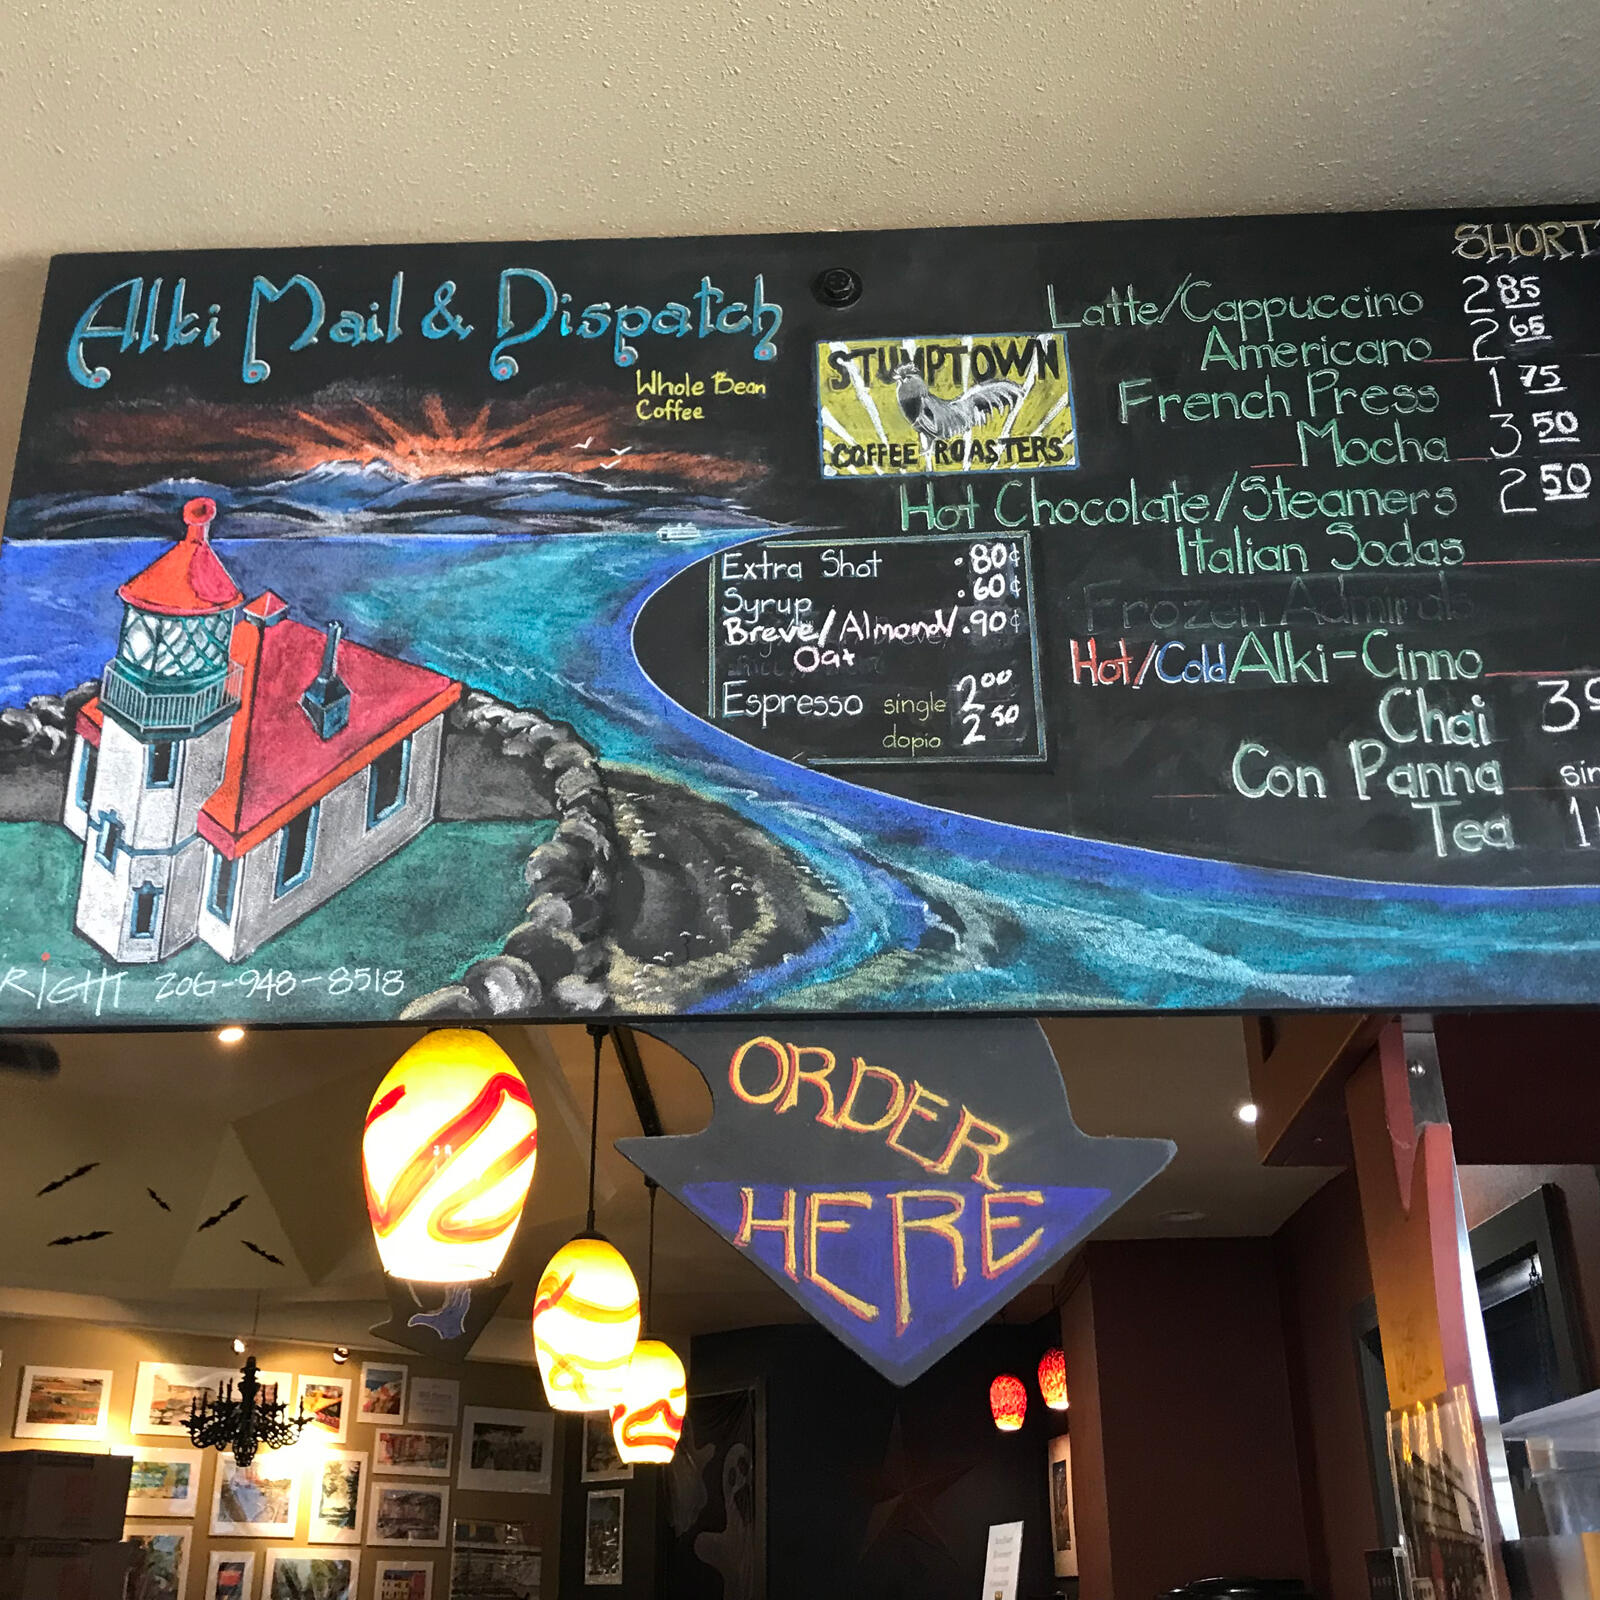 Alki Mail & Dispatch
Whole Bean
Coffee
STUMPTOWN
COFFEE ROASTERS
SHORT
Latte/Cappuccino 2 85
Americano 2 65
French Press 1 75
Mocha 3 50
Hot Chocolate/Steamers 2 50
Italian Sodas
Frozen Admirals
Hot/Cold Alki-Cinno
Chai 3
Con Panna
Tea 1
Extra Shot .80¢
Syrup .60¢
Breve/Almond/ .90¢
Oat
Espresso single 2 00
dopio 2 50
RIGHT 206-948-8518
ORDER
HERE